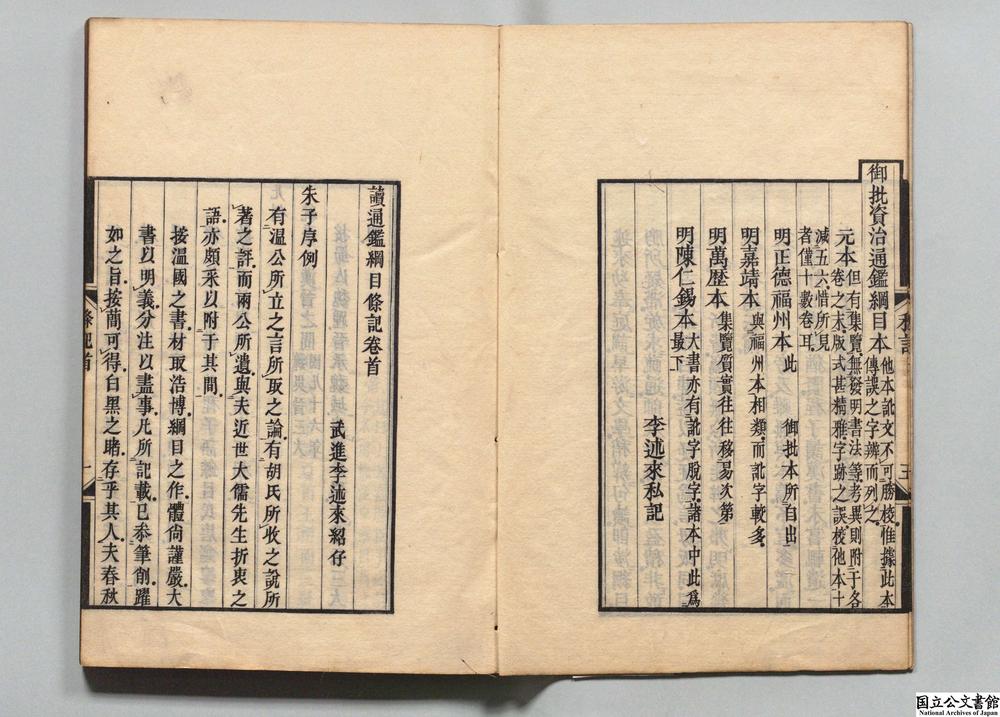 御批資治通鑑綱目本他本訛文不可勝校惟據此本
傳誤之字辨而列之
元本但有集覽無發明書法等考異則附于各
卷之末版式甚精雅字跡之誤校他本十
減五六惜所見
者僅十數卷耳
明正德福州本此 御批本所自出
明嘉靖本與福州本相類而訛字較多
明萬歷本集覽質實往往移易次第
明陳仁錫本大書亦有訛字脫字諸本中此爲
最下
李述來私記
五
讀通鑑綱目條記卷首
武進李述來紹仔
朱子序例
有溫公所立之言所取之論有胡氏所收之說所
著之評而兩公所遺與夫近世大儒先生折衷之
語亦頗采以附于其間
按溫國之書材取浩博綱目之作體尙謹嚴大
書以明義分注以盡事凡所記載已忝筆削躍
如之旨按蕳可得白黑之睹存乎其人夫春秋
條記首
一
国立公文書館
National Archives of Japan